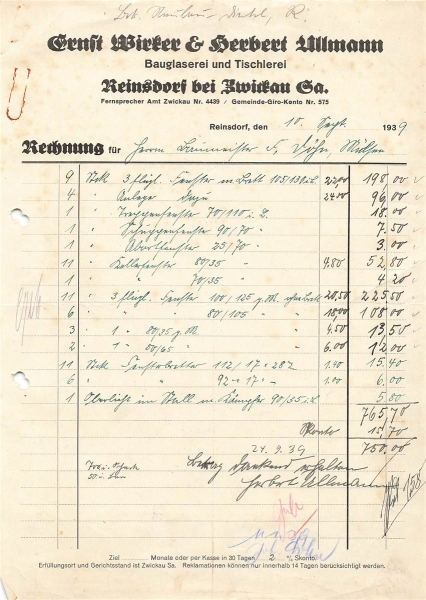 Ernst Wirker & Herbert Ullmann
Bauglaserei und Tischlerei
Reinsdorf bei Zwickau Sa.
Fernsprecher Amt Zwickau Nr. 4439 / Gemeinde-Giro-Konto Nr. 575
Reinsdorf, den 10. Sept. 1939
Rechnung für Herrn Baumeister F. Döhn, Mülsen
9 Stck 3 flügl. Fenster m. Brett 105/130 i. L. 22.00 198.00
4 " Anlage dazu 24.00 96.00
1 " Treppenfenster 70/110 i. L. 18.00
1 " Schuppenfenster 90/70 " 7.50
1 " Abortfenster 25/70 " 3.00
11 " Kellerfenster 80/35 " 4.80 52.80
1 " " 70/35 " 4.20
11 " 3 flügl. Fenster 100/125 g. M. ohne Brett 20.50 225.50
6 " " 80/105 " 18.00 108.00
3 " 1 " 80/35 g. M. 4.50 13.50
2 " 1 " 6.00 12.00
11 Stck Fensterbretter 112/17 1.40 15.40
6 " " 92 17 " 1.00 6.00
1 Oberlicht im Stall m. Kämpfer 90/35 i. L. 5.80
765.70
Skonto 15.70
750.00
24. 9. 39
Betrag dankend erhalten
Herbert Ullmann
Ziel Monate oder per Kasse in 30 Tagen 2 % Skonto.
Erfüllungsort und Gerichtsstand ist Zwickau Sa. Reklamationen können nur innerhalb 14 Tagen berücksichtigt werden.